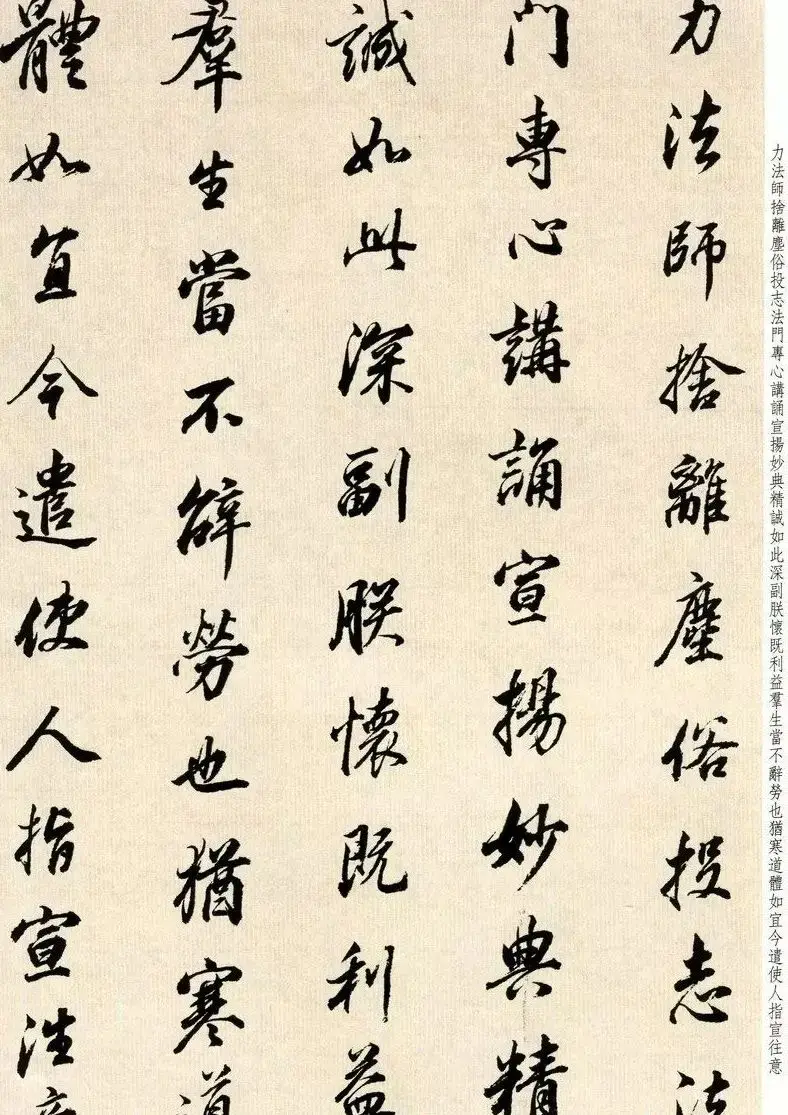 力法師捨離塵俗投志法
門專心講誦宣揚妙典精
誠如此深副朕懷既利益
羣生當不辭勞也猶寒道
體如宜今遣使人指宣往意
力法師捨離塵俗投志法門專心講誦宣揚妙典精誠如此深副朕懷既利益羣生當不辭勞也猶寒道體如宜今遣使人指宣往意